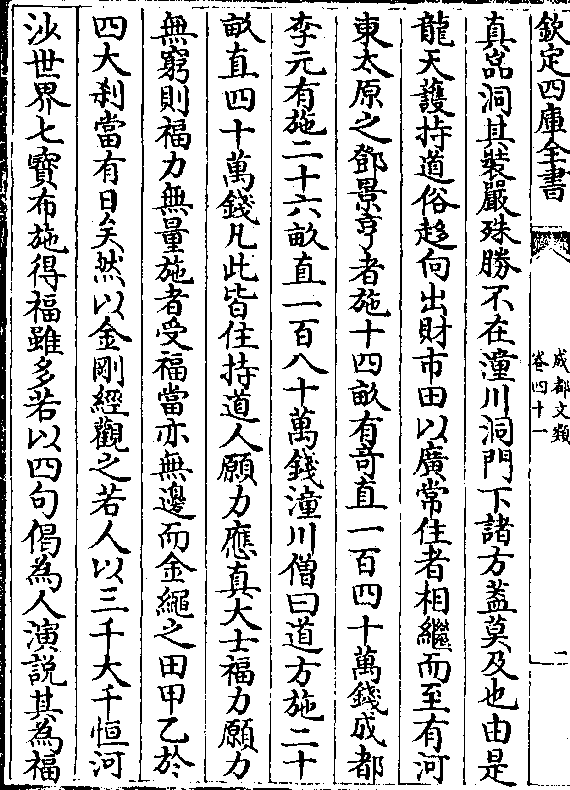 欽定四庫全書
成都文類
卷四十一
一
真嵓洞其裝嚴殊勝不在潼川洞門下諸方蓋莫及也由是
龍天護持道俗趍向出財市田以廣常住者相繼而至有河
東太原之鄧景亨者施十四畝有竒直一百四十萬錢成都
李元有施二十六畝直一百八十萬錢潼川僧曰道方施二十
畝直四十萬錢凡此皆住持道人願力應真大士福力願力
無窮則福力無量施者受福當亦無邊而金繩之田甲乙於
四大刹當有日矣然以金剛經觀之若人以三千大千恒河
沙世界七寶布施得福雖多若以四句偈為人演説其為福